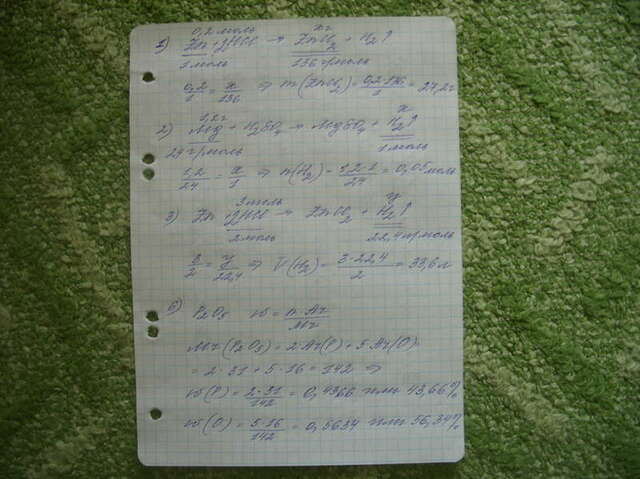 0,2 моль xг
1) Zn + 2HCl → ZnCl2 + H2↑
1 моль 136 г/моль
0,2/1 = x/136 ⇒ m(ZnCl2) = 0,2·136/1 = 27,2г
1,2г x
2) Mg + H2SO4 → MgSO4 + H2↑
24 г/моль 1 моль
1,2/24 = x/1 ⇒ n(H2) = 1,2·1/24 = 0,05 моль
3 моль y
3) Zn + 2HCl → ZnCl2 + H2↑
2 моль 22,4 л/моль
3/2 = y/22,4 ⇒ V(H2) = 3·22,4/2 = 33,6 л
P2O5 w = n·Ar/Mr
Mr(P2O5) = 2Ar(P) + 5Ar(O)
= 2·31 + 5·16 = 142 ⇒
w(P) = 2·31/142 = 0,4366 или 43,66%
w(O) = 5·16/142 = 0,5634 или 56,34%